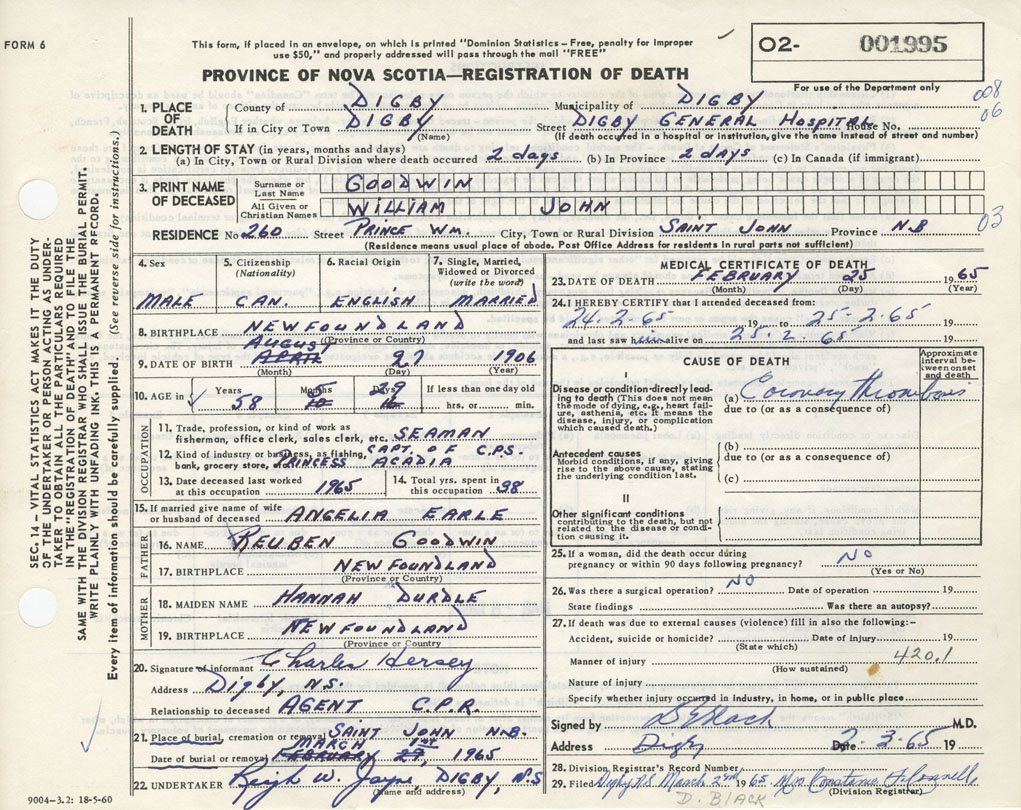 FORM 6
This form, if placed in an envelope, on which is printed "Dominion Statistics – Free, penalty for improper
use $50," and properly addressed will pass through the mail "FREE"
02- 001995
For use of the Department only
PROVINCE OF NOVA SCOTIA—REGISTRATION OF DEATH
008
06
1. PLACE OF DEATH
County of DIGBY Municipality of DIGBY
If in City or Town DIGBY Street DIGBY GENERAL HOSPITAL House No.
(Name) (If death occurred in a hospital or institution, give the name instead of street and number)
2. LENGTH OF STAY (in years, months and days)
(a) In City, Town or Rural Division where death occurred 2 days (b) In Province 2 days (c) In Canada (if immigrant)
3. PRINT NAME OF DECEASED
Surname or Last Name GOODWIN
All Given or Christian Names WILLIAM JOHN
RESIDENCE No 260 Street PRINCE WM. City, Town or Rural Division SAINT JOHN Province N.B 03
(Residence means usual place of abode. Post Office Address for residents in rural parts not sufficient)
4. Sex
MALE
5. Citizenship (Nationality)
CAN.
6. Racial Origin
ENGLISH
7. Single, Married, Widowed or Divorced (write the word)
MARRIED
8. BIRTHPLACE NEWFOUNDLAND
(Province or Country)
AUGUST
9. DATE OF BIRTH APRIL 27 1906
(Month) (Day) (YEAR)
10. AGE in Years Months Days If less than one day old
58 5 29 hrs. or min.
OCCUPATION
11. Trade, profession, or kind of work as
fisherman, office clerk, sales clerk, etc. SEAMAN
12. Kind of industry or business, as fishing, CAPT. OF C.P.S.
bank, grocery store, PRINCESS ACADIA
13. Date deceased last worked
at this occupation 1965
14. Total yrs. spent in
this occupation 38
15. If married give name of wife
or husband of deceased ANGELIA EARLE
FATHER
16. NAME REUBEN GOODWIN
17. BIRTHPLACE NEWFOUNDLAND
(Province or Country)
MOTHER
18. MAIDEN NAME HANNAH DURDLE
19. BIRTHPLACE NEWFOUNDLAND
(Province or Country)
20. Signature of informant Charles Hersey
Address Digby, N.S.
Relationship to deceased AGENT C.P.R.
21. Place of burial, cremation or removal SAINT JOHN N.B.
MARCH 1st
Date of burial or removal FEBRUARY 27, 1965
22. UNDERTAKER Keigh W. Jayne, DIGBY, N.S
(Name and address)
9004-3.2: 18-5-60
MEDICAL CERTIFICATE OF DEATH
23. DATE OF DEATH FEBRUARY 25 1965
(Month) (Day) (Year)
24. I HEREBY CERTIFY that I attended deceased from:
24-2-65 19 to 25-2-65 19
and last saw him alive on 25-2-65 19
CAUSE OF DEATH
Approximate interval between onset and death
I
Disease or condition directly leading to death (This does not mean the mode of dying, e.g., heart failure, asthenia, etc. It means the disease, injury, or complication which caused death.)
(a) Coronary thrombosis
due to (or as a consequence of)
Antecedent causes
Morbid conditions, if any, giving rise to the above cause, stating the underlying condition last.
(b)
due to (or as a consequence of)
(c)
II
Other significant conditions
contributing to the death, but not related to the disease or condition causing it.
25. If a woman, did the death occur during
pregnancy or within 90 days following pregnancy? NO
(Yes or No)
26. Was there a surgical operation? NO Date of operation 19
State findings Was there an autopsy?
27. If death was due to external causes (violence) fill in also the following:–
Accident, suicide or homicide? Date of injury 19
(State which)
Manner of injury 420.1
(How sustained)
Nature of injury
Specify whether injury occurred in industry, in home, or in public place
Signed by Black M.D.
Address Digby Date 2.3.65 19
28. Division Registrar's Record Number
29. Filed Digby N.S March 2nd 1965 Mrs Constance
(Division Registrar)
D. BLACK
SEC. 14 – VITAL STATISTICS ACT MAKES IT THE DUTY
OF THE UNDERTAKER OR PERSON ACTING AS UNDER-
TAKER TO OBTAIN ALL THE PARTICULARS REQUIRED
IN THE "REGISTRATION OF DEATH" AND TO FILE THE
SAME WITH THE DIVISION REGISTRAR WHO SHALL ISSUE THE BURIAL PERMIT.
WRITE PLAINLY WITH UNFADING INK. THIS IS A PERMANENT RECORD.
Every item of information should be carefully supplied. (See reverse side for instructions.)